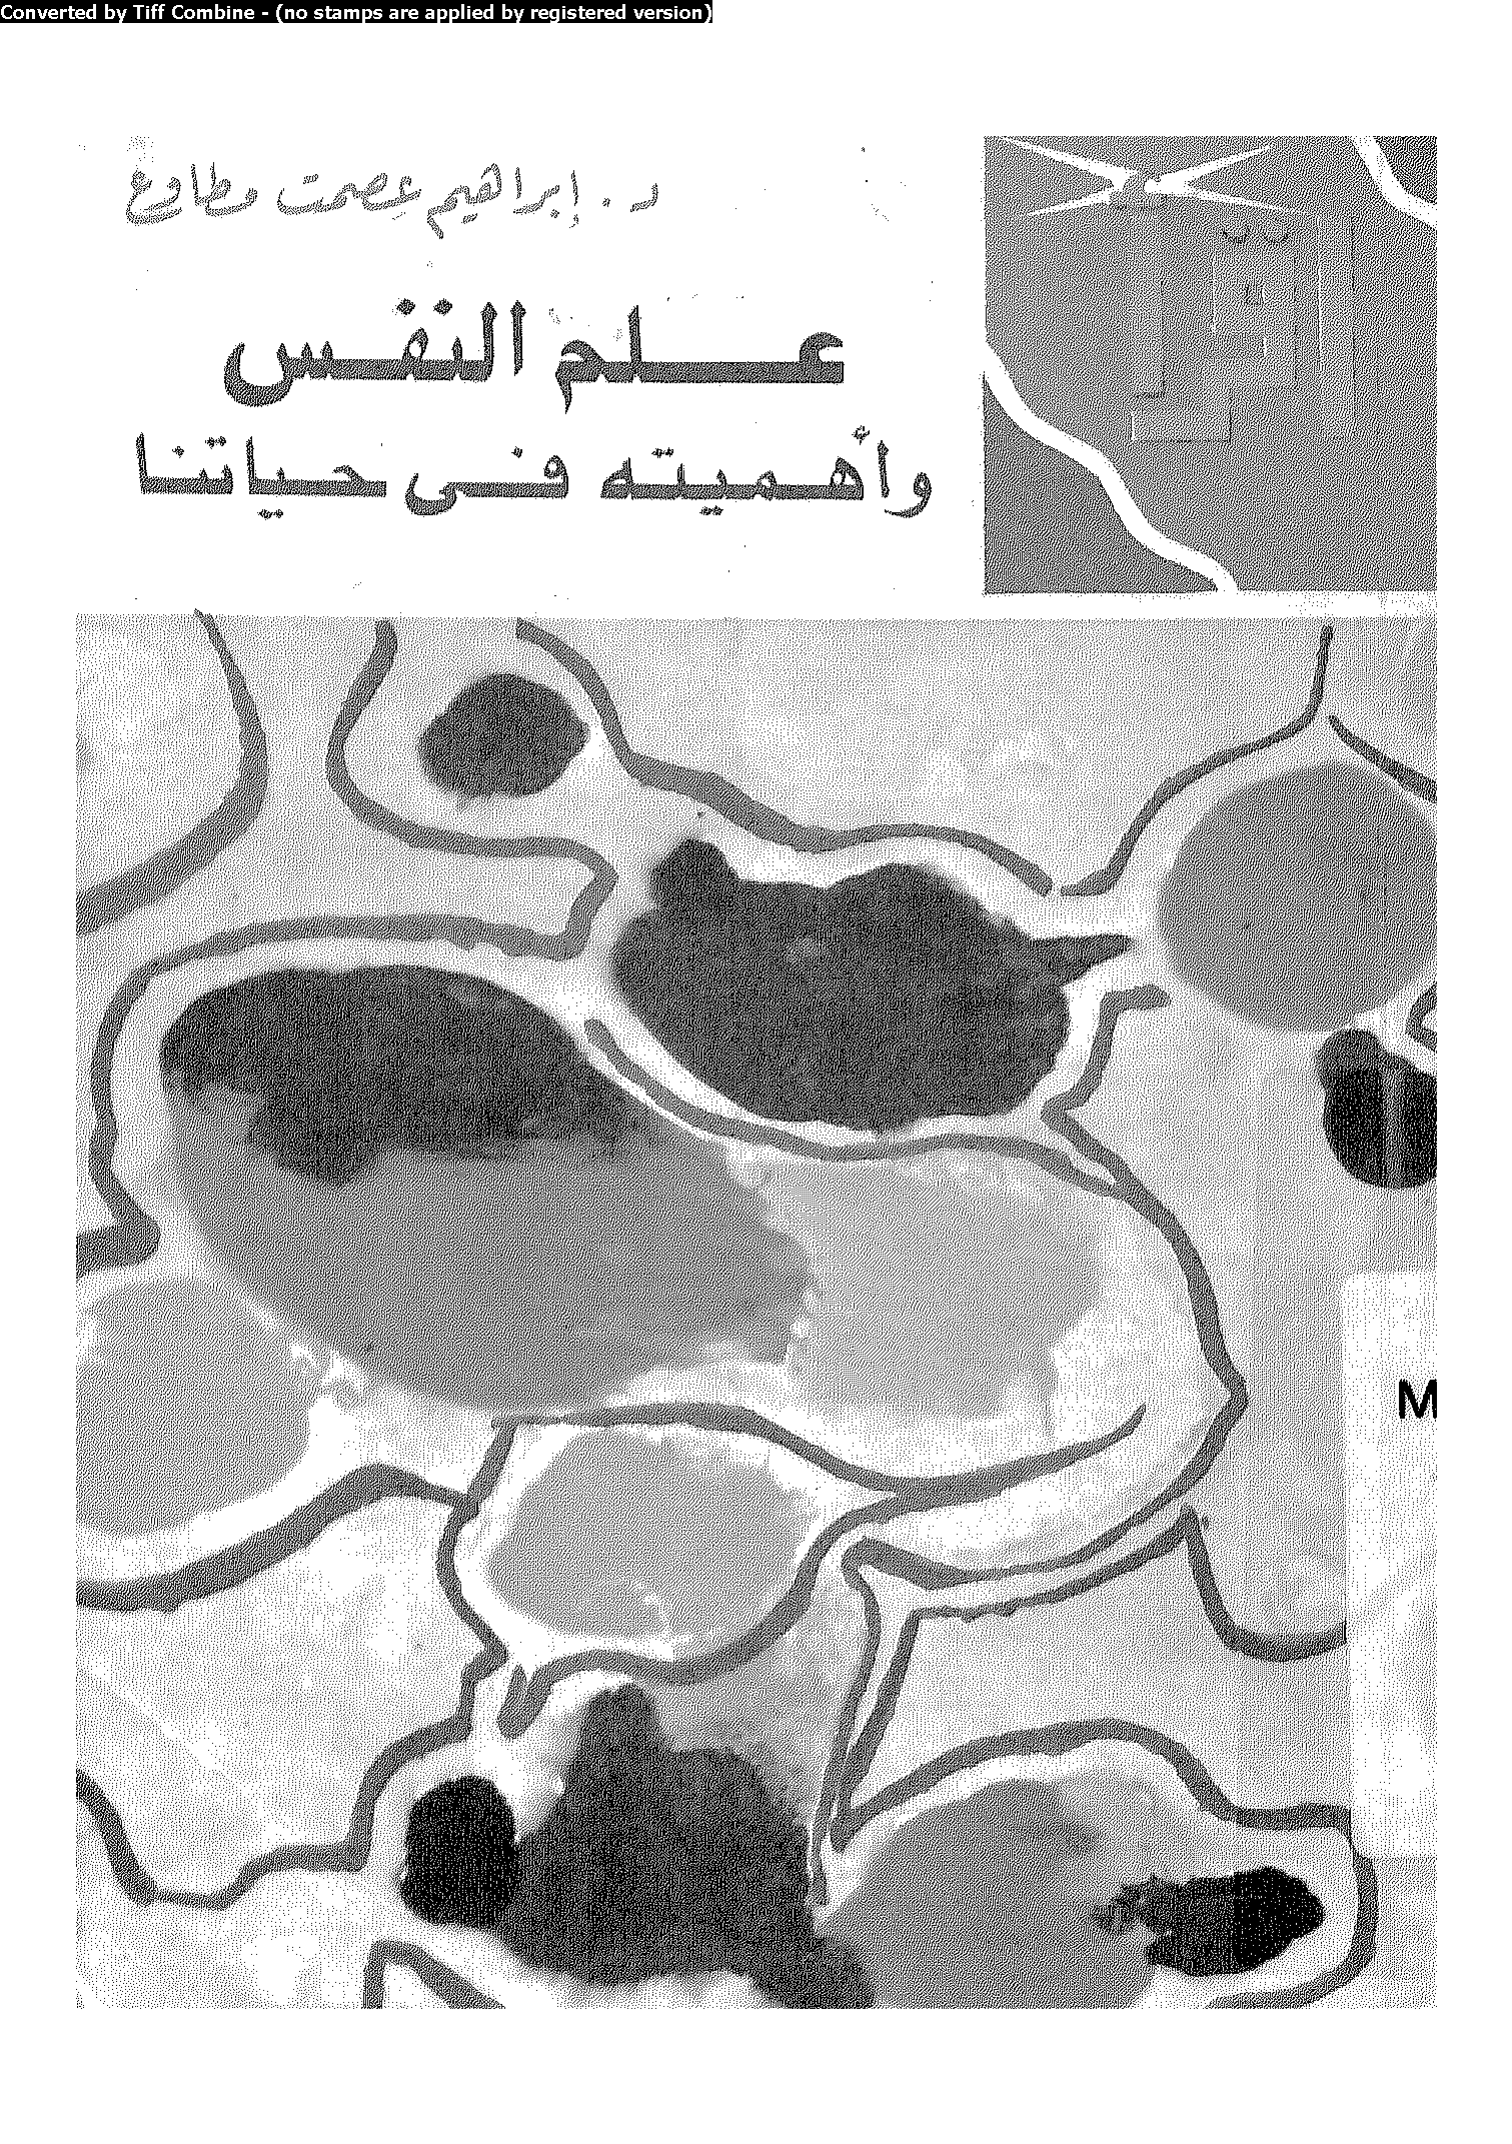 Converted by Tiff Combine - (no stamps are applied by registered version)
د. إبراهيم عصمت مطاوع
علم النفس
وأهميته فى حياتنا
M